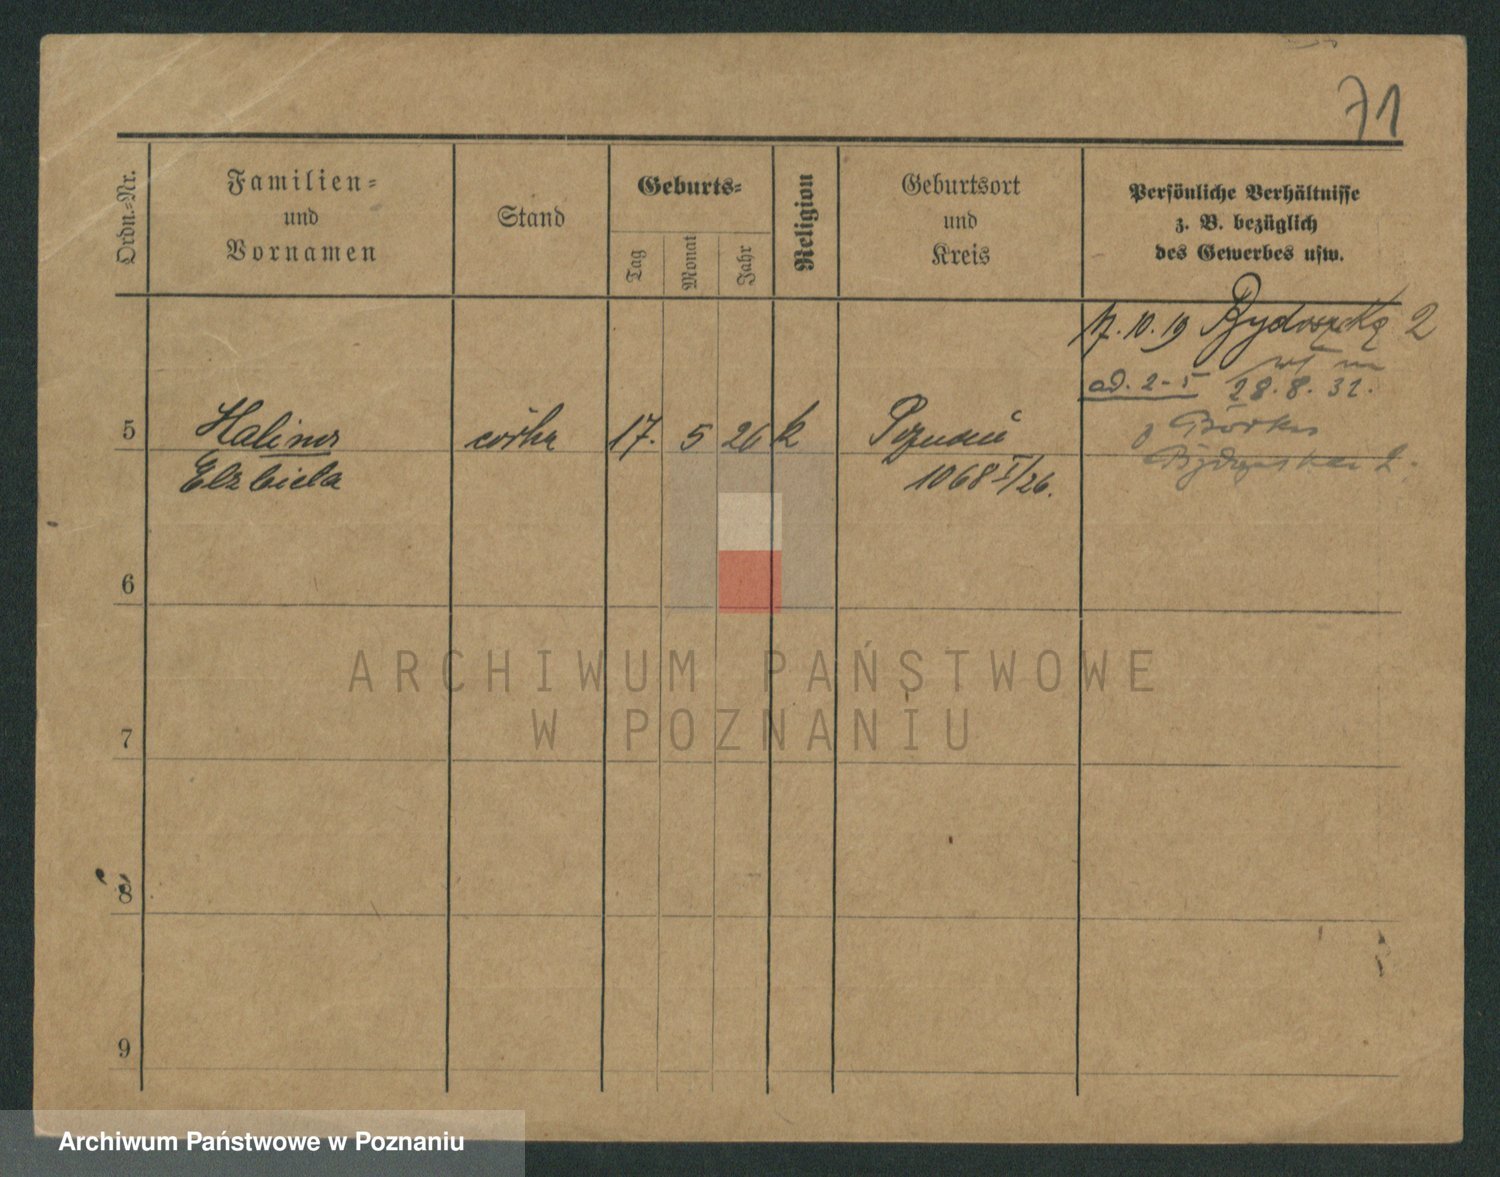 71
Ordn.-Nr.
Familien-
und
Vornamen
Stand
Geburts-
Tag
Monat
Jahr
Religion
Geburtsort
und
Kreis
Persönliche Verhältnisse
z. B. bezüglich
des Gewerbes usw.
17. 10. 19 Bydoszcką 2
ad. 2-5 28. 8. 31.
5 Halina córka 17. 5 26 k Poznań
Elzbieta 1068 I/26.
6
7
8
9
ARCHIWUM PAŃSTWOWE
W POZNANIU
Archiwum Państwowe w Poznaniu